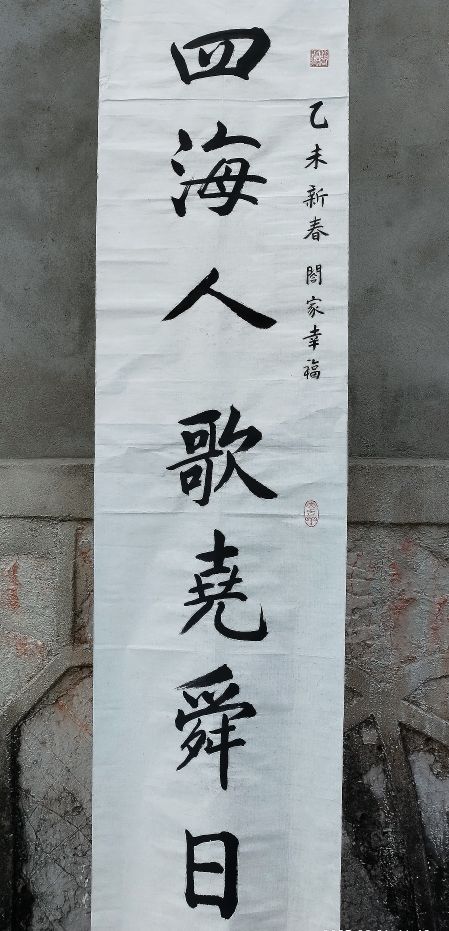 四海人歌堯舜日
乙未新春 閤家幸福